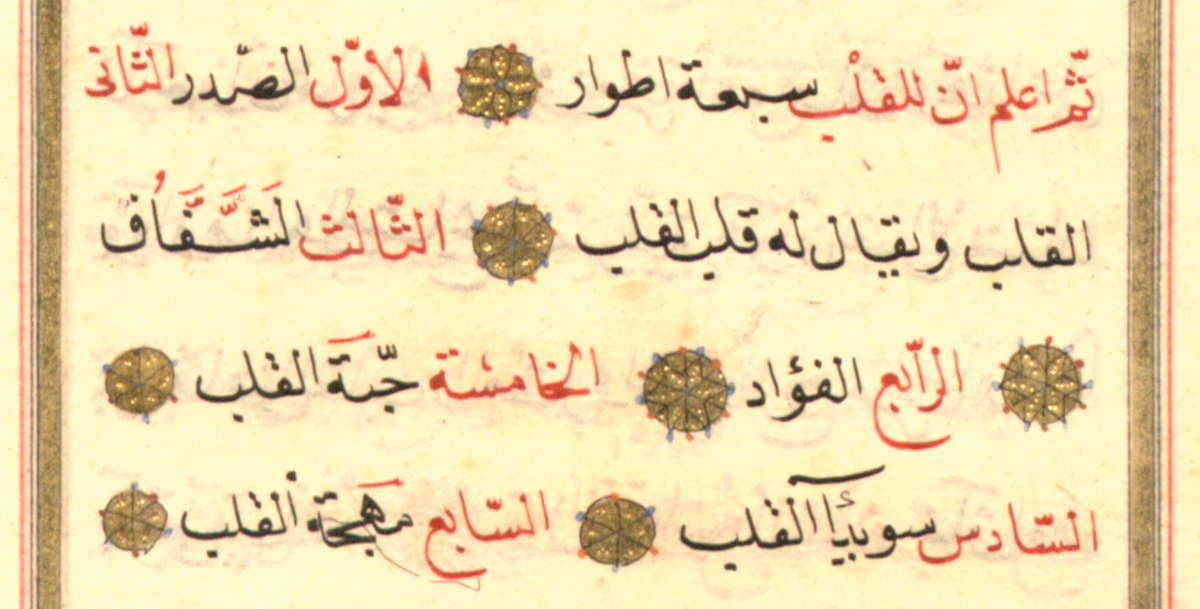 ثّم اعلم انّ للقلْب سبعة اطوار الاوّل الصّدر الثّانى
القلب ويقال له قلب القلب الثّالث الشَّفَّافُ
الرّابع الفؤاد الخامسة حبّة القلب
السّادس سويدآء القلب السّابع مهجة القلب